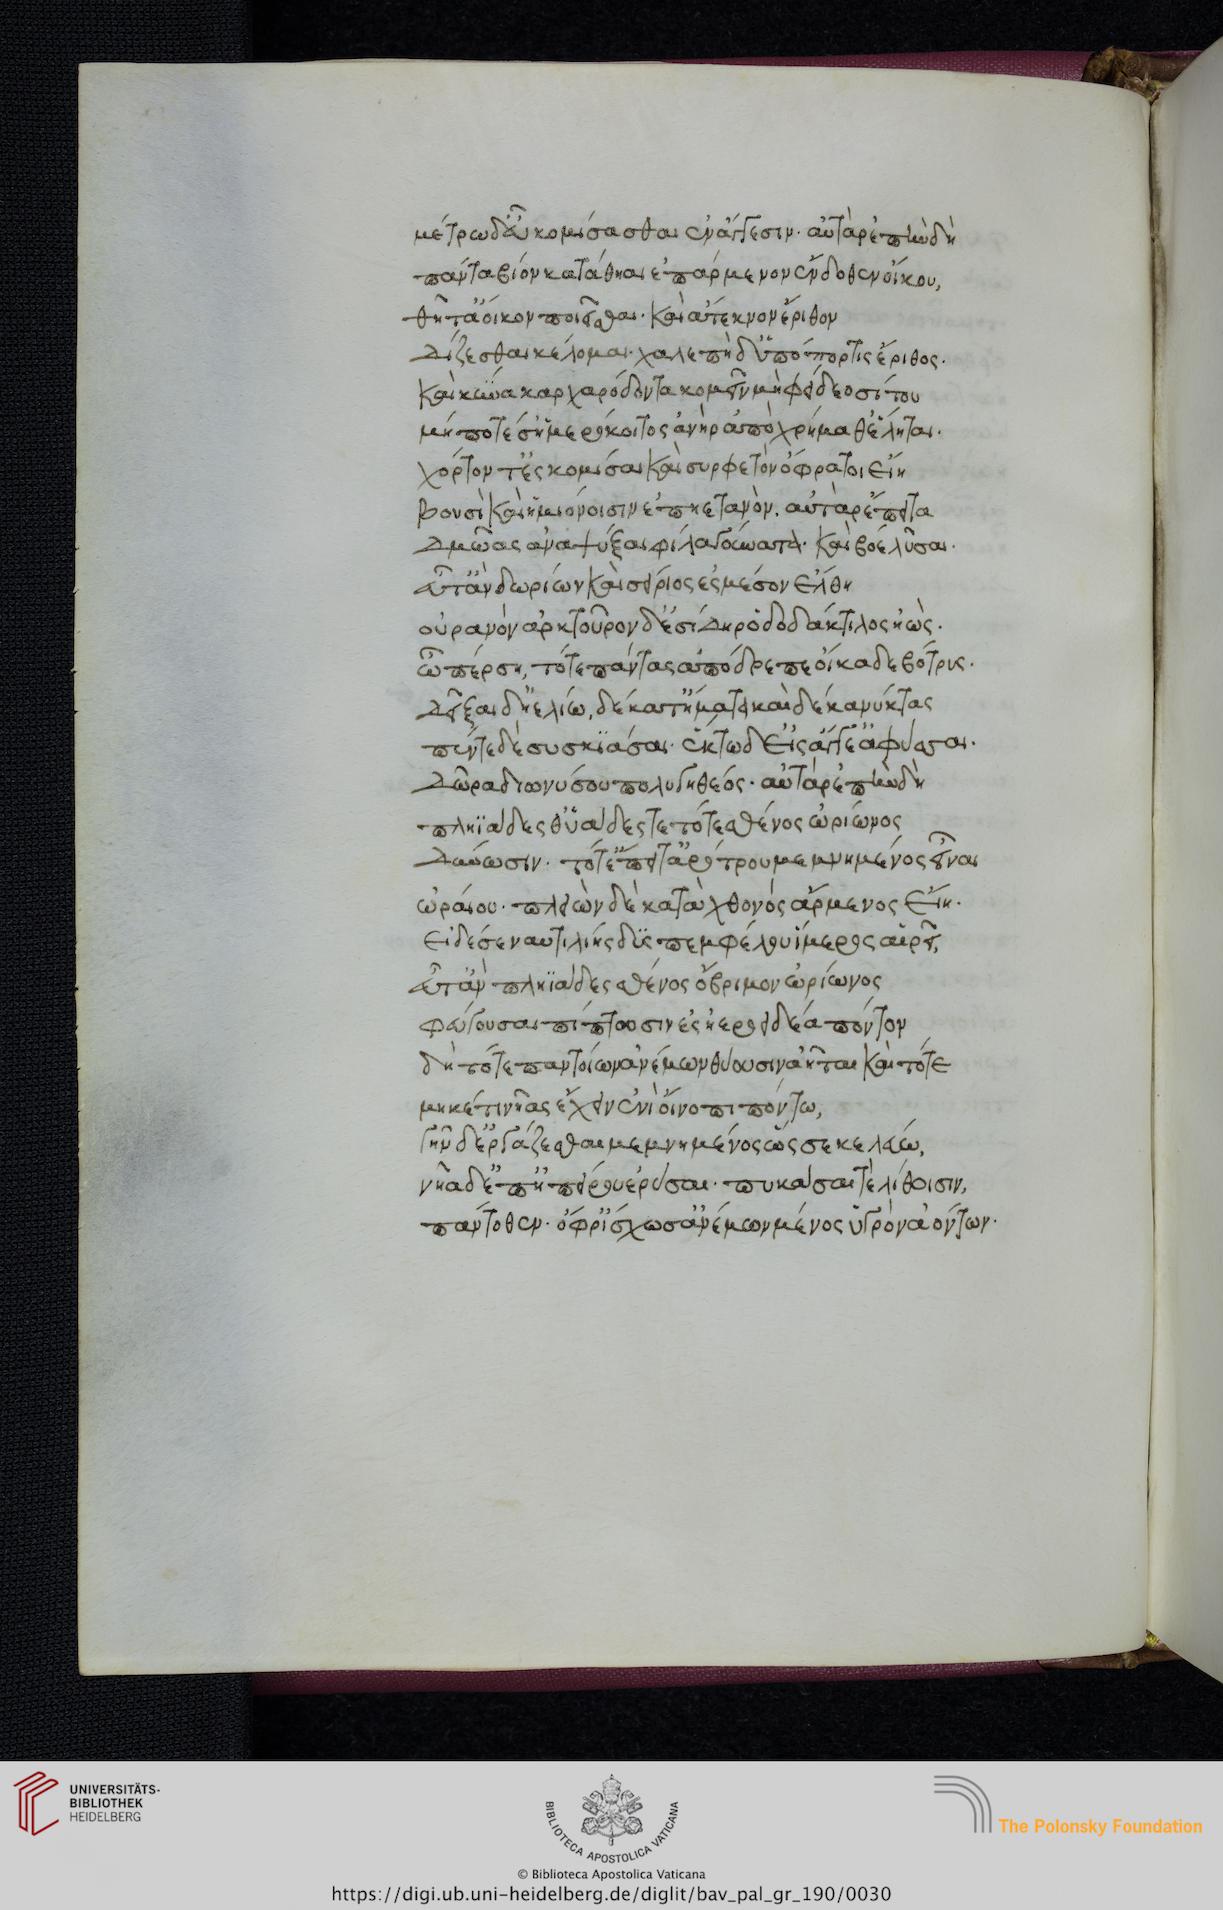 μέτρω δ' εὖ κομίσασθαι ἐν ἄγγεσιν· αὐτὰρ ἐπὴν δὴ
πάντα βίον κατάθηαι ἐπάρμενον ἔνδοθεν οἴκου,
θῆτα ἄοικον ποιεῖσθαι· καὶ ἄτεκνον ἔριθον
Δίζεσθαι κέλομαι· χαλεπὴ δ' ὑπόπορτις ἔριθος·
Καὶ κύνα καρχαρόδοντα κομεῖν μὴ φείδεο σίτου
μή ποτέ σ' ἡμερόκοιτος ἀνὴρ ἀπὸ χρήμαθ' ἕληται·
χόρτον τ' ἐς κομίσαι καὶ συρφετὸν ὄφρα τοι εἴη
Βουσὶ καὶ ἡμιόνοισιν ἐπηετανόν. αὐτὰρ ἔπειτα
Δμῶας ἀναψύξαι φίλα γούνατα· καὶ βόε λῦσαι·
εὖτ' ἂν δ' ὠρίων καὶ σείριος ἐς μέσον ἔλθη
οὐρανὸν ἀρκτοῦρον δ' ἐσίδη ῥοδοδάκτιλος ἠώς·
ὦ πέρση, τότε πάντας ἀπόδρεπε οἴκαδε βότρις·
Δεῖξαι δ' ἠελίω, δέκα τ' ἤματα καὶ δέκα νύκτας
πέντε δὲ συσκϊάσαι· ἕκτω δ' εἰς ἄγγε' ἀφύσσαι·
Δῶρα διωνύσου πολυγηθέος· αὐτὰρ ἐπὴν δὴ
πληϊάδες θ' ὑάδες τε τό τε σθένος ὠρίωνος
Δύνωσιν· τότ' ἔπειτ' ἀρότρου μεμνημένος εἶναι
ὡραίου· πλειὼν δὲ κατὰ χθονὸς ἄρμενος εἴη·
Εἰ δέ σε ναυτιλίης δϋσπεμφέλου ἵμερος αἱρεῖ,
εὖτ' ἂν πληϊάδες σθένος ὄβριμον ὠρίωνος
φεύγουσαι πίπτουσιν ἐς ἠεροειδέα πόντον
δὴ τότε παντοίων ἀνέμων θύουσιν ἀῆται καὶ τότε
μηκέτι νῆας ἔχειν ἐνὶ οἴνοπι πόντω,
γῆν δ' ἐργάζεσθαι μεμνημένος ὥς σε κελεύω,
νῆα δ' ἐπ' ἠπείρου ἐρύσαι· πυκάσαι τε λίθοισιν,
πάντοθεν· ὄφρ' ἴσχωσ' ἀνέμων μένος ὑγρὸν ἀόντων·
UNIVERSITÄTS-
BIBLIOTHEK
HEIDELBERG
BIBLIOTECA APOSTOLICA VATICANA
The Polonsky Foundation
© Biblioteca Apostolica Vaticana
https://digi.ub.uni-heidelberg.de/diglit/bav_pal_gr_190/0030